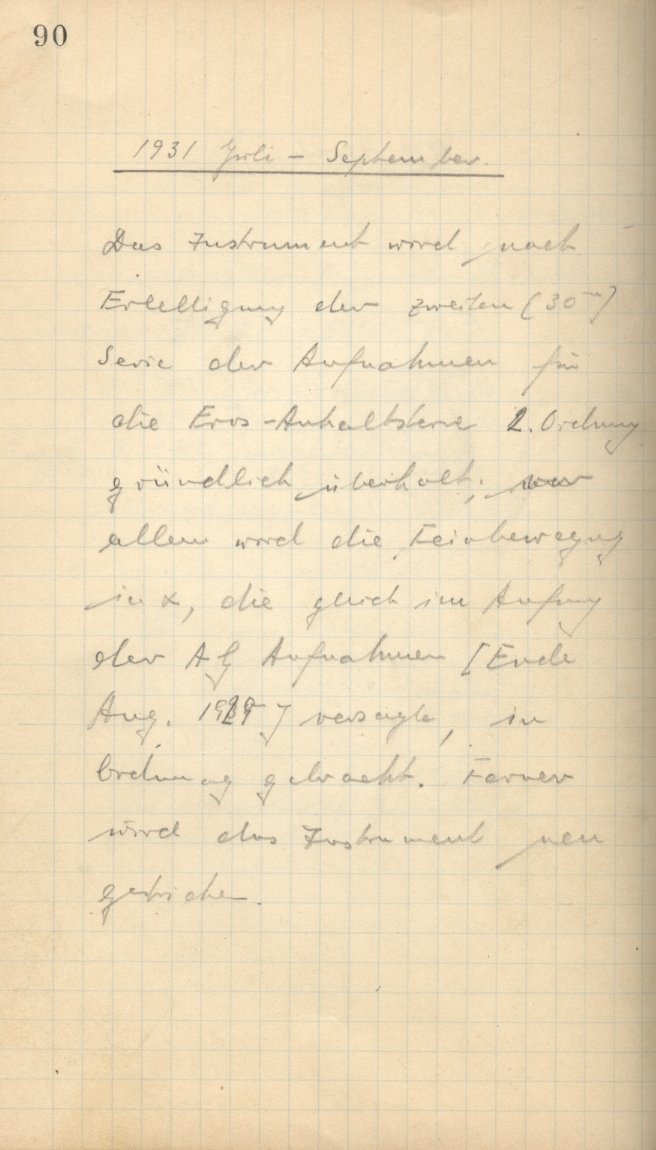 90
1931 Juli – September.
Das Instrument wird nach
Erledigung der zweiten (30ᵐ)
Serie der Aufnahmen für
die Eros-Anhaltsterne 2. Ordnung
gründlich überholt; vor
allem wird die Feinbewegung
in α, die gleich im Anfang
der AG Aufnahmen [Ende
Aug. 1929] versagte, in
Ordnung gebracht. Ferner
wird das Instrument neu
gestrichen.